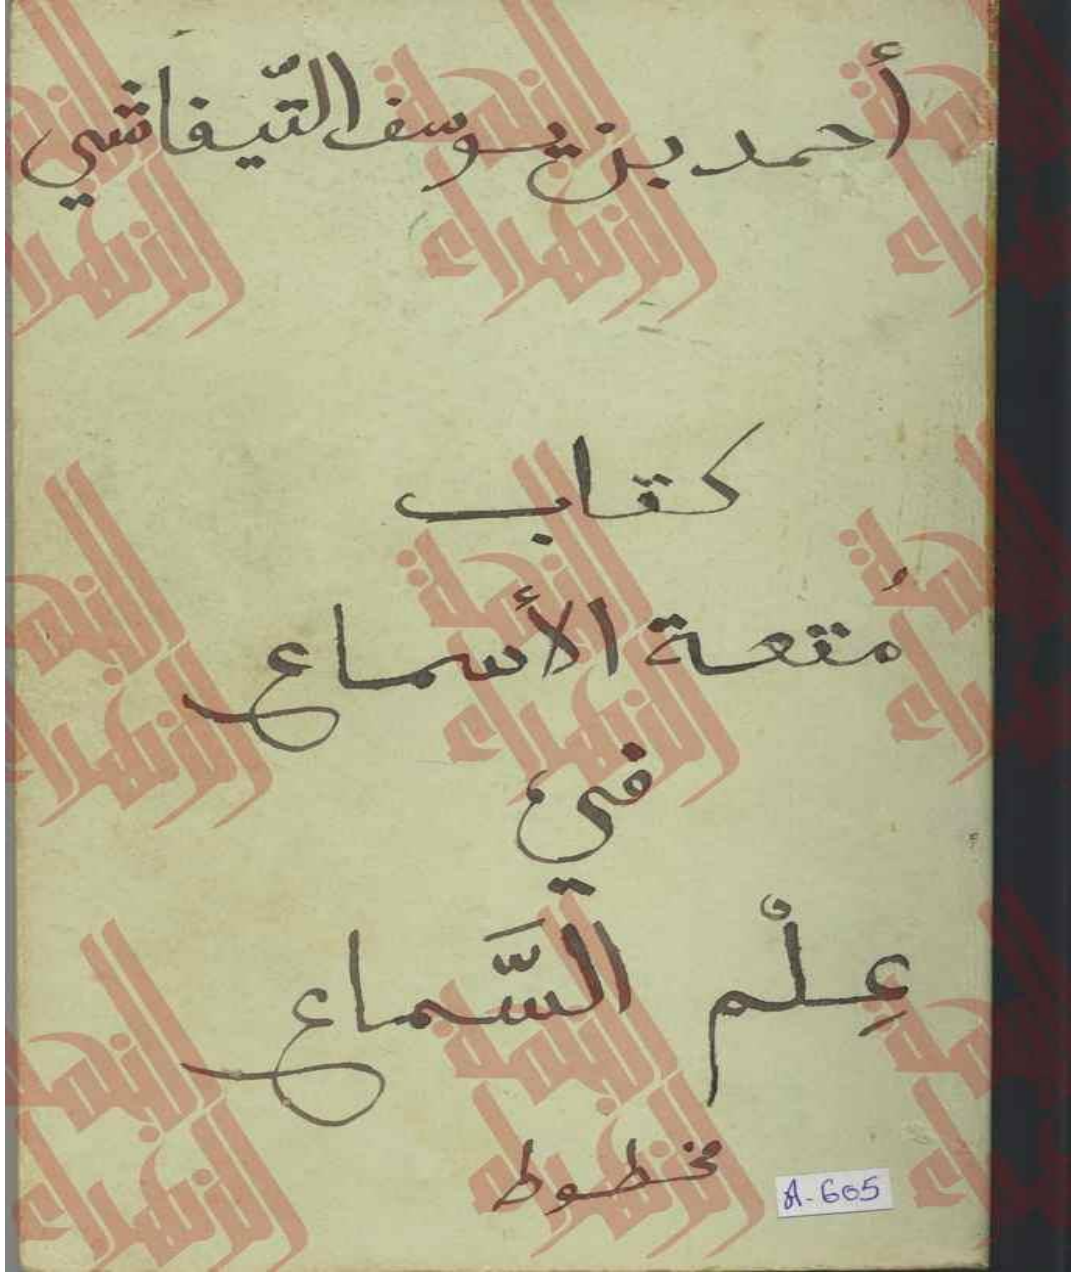 أحمد بن يوسف التّيفاشي
كتاب
مُتعة الأسماع
في
عِلْم السَّماع
مخطوط
A-605